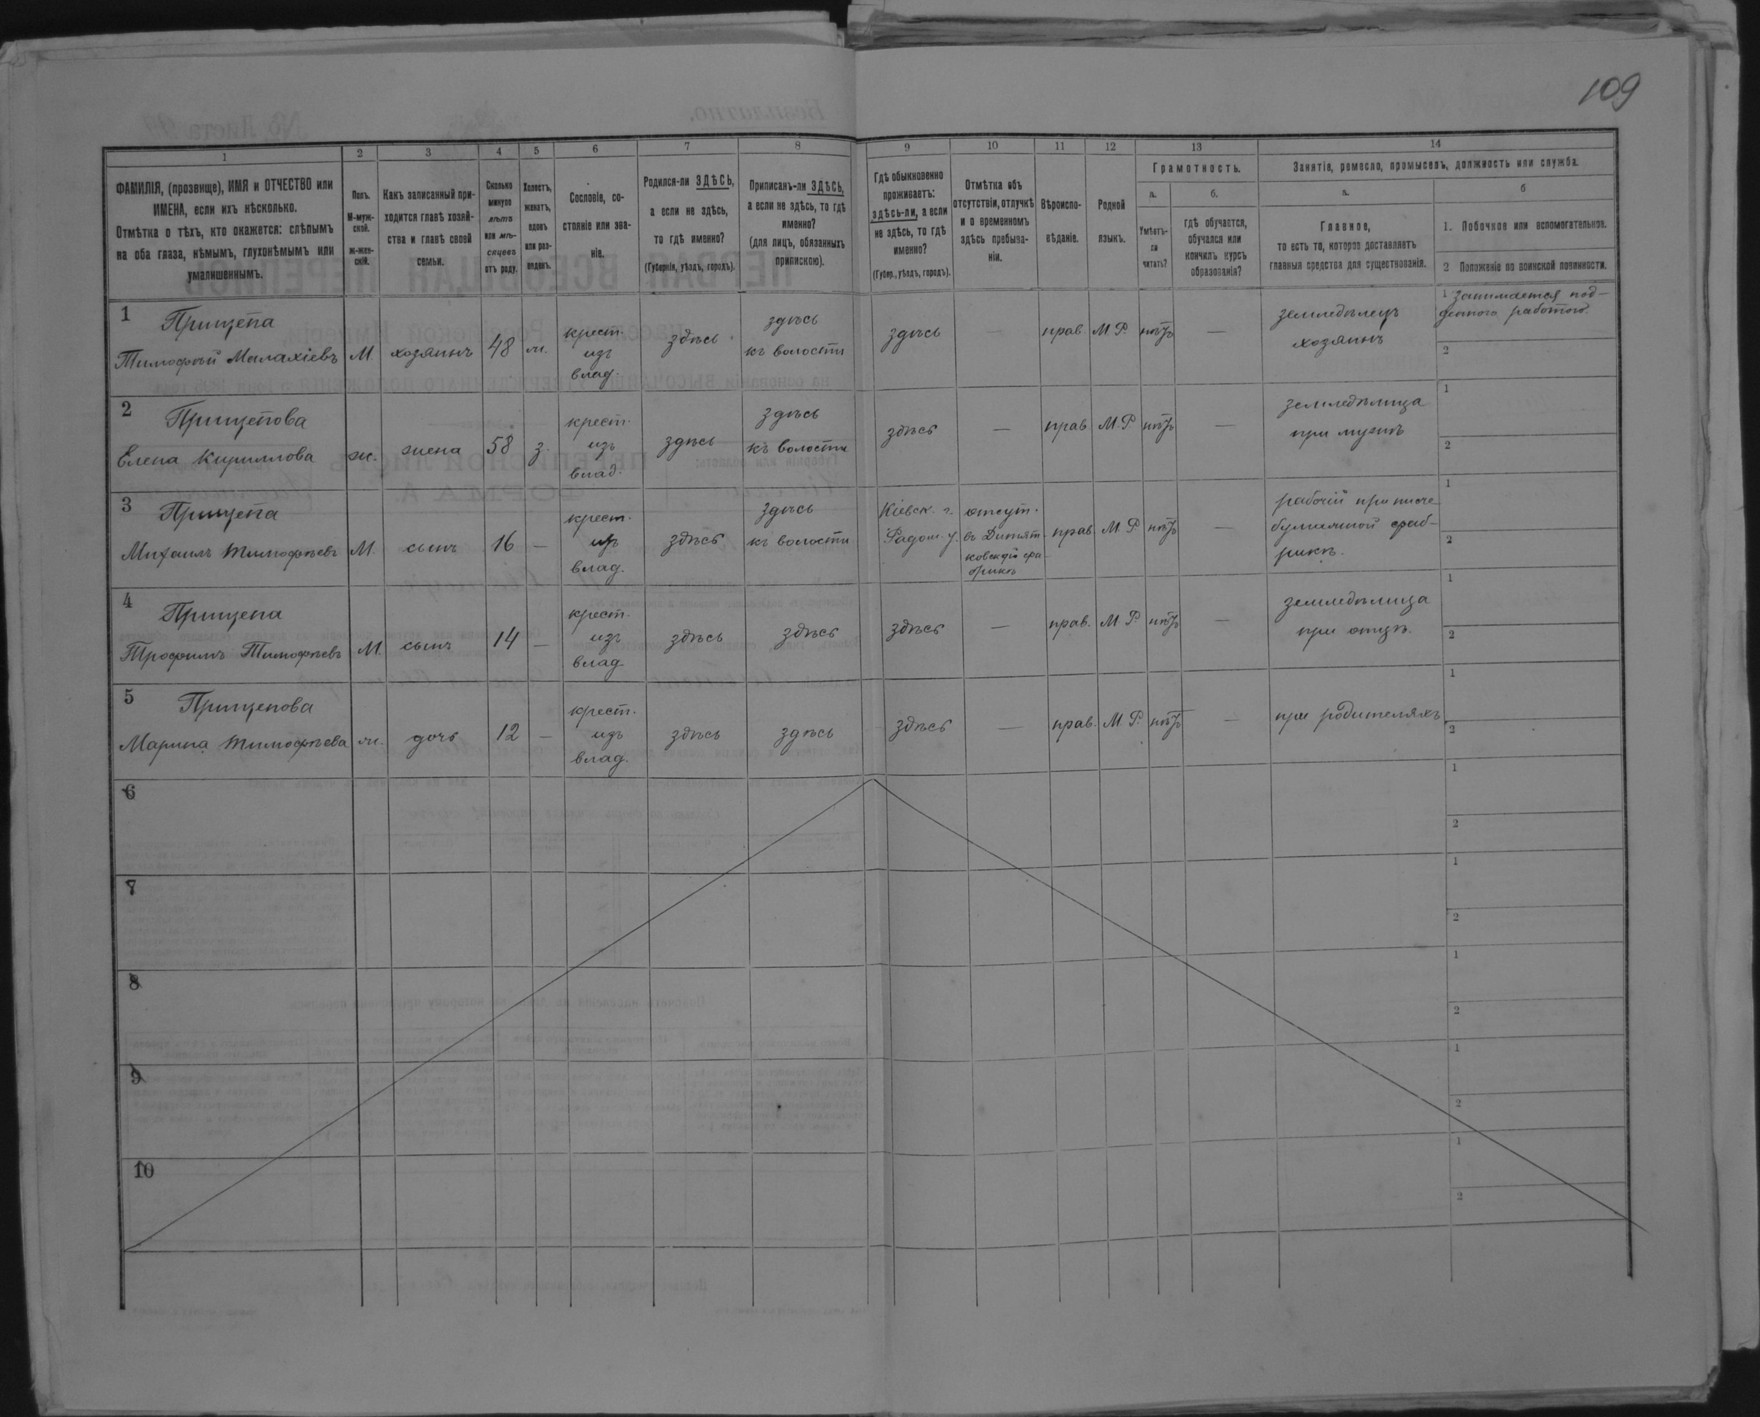 109
1
2
3
4
5
6
7
8
9
10
11
12
13
14
ФАМИЛІЯ, (прозвище), ИМЯ и ОТЧЕСТВО или
ИМЕНА, если ихъ нѣсколько.
Отмѣтка о тѣхъ, кто окажется: слѣпымъ
на оба глаза, нѣмымъ, глухонѣмымъ или
умалишеннымъ.
Полъ.
М-муж-
ской.
ж-жен-
скій.
Какъ записанный при-
ходится главѣ хозяй-
ства и главѣ своей
семьи.
Сколько
минуло
лѣтъ
или мѣ-
сяцевъ
отъ роду.
Холостъ,
женатъ,
вдовъ
или раз-
веденъ.
Сословіе, со-
стояніе или зва-
ніе.
Родился-ли ЗДѢСЬ,
а если не здѣсь,
то гдѣ именно?
(Губернія, уѣздъ, городъ).
Приписанъ-ли ЗДѢСЬ,
а если не здѣсь, то гдѣ
именно?
(для лицъ, обязанныхъ
припискою).
Гдѣ обыкновенно
проживаетъ:
здѣсь-ли, а если
не здѣсь, то гдѣ
именно?
(Губер., уѣздъ, городъ).
Отмѣтка объ
отсутствіи, отлучкѣ
и о временномъ
здѣсь пребыва-
ніи.
Вѣроиспо-
вѣданіе.
Родной
языкъ.
Грамотность.
а.
Умѣетъ-
ли
читать?
б.
гдѣ обучается,
обучался или
кончилъ курсъ
образованія?
Занятіе, ремесло, промыселъ, должность или служба.
а.
Главное,
то есть то, которое доставляетъ
главныя средства для существованія.
б
1. Побочное или вспомогательное.
2 Положеніе по воинской повинности.
1
Прищепа
Тимофѣй Малахіевъ
М
хозяинъ
48
ж.
крест.
изъ
влад.
здѣсь
здѣсь
къ волости
здѣсь
—
прав.
М Р.
нѣтъ
—
земледѣлецъ
хозяинъ
1 занимается под-
денною работою.
2
2
Прищепова
Елена Кириллова
ж.
жена
58
з.
крест.
изъ
влад.
здѣсь
здѣсь
къ волости
здѣсь
—
прав
М.Р
нѣтъ
—
земледѣлица
при мужѣ
1
2
3
Прищепа
Михаилъ Тимофѣевъ
М.
сынъ
16
—
крест.
изъ
влад.
здѣсь
здѣсь
къ волости
Кіевск. г.
Радом. у.
отсут.
въ Дитят-
ковской фа-
брикѣ
прав.
М Р.
нѣтъ
—
рабочій при писче-
бумажной фаб-
рикѣ.
1
2
4
Прищепа
Трофимъ Тимофѣевъ
М.
сынъ
14
—
крест.
изъ
влад.
здѣсь
здѣсь
здѣсь
—
прав.
М Р.
нѣтъ
—
земледѣлица
при отцѣ.
1
2
5
Прищепова
Марина Тимофѣева
ж.
дочь
12
—
крест.
изъ
влад.
здѣсь
здѣсь
здѣсь
—
прав.
М Р.
нѣтъ
—
при родителяхъ
1
2
6
1
2
7
1
2
8
1
2
9
1
2
10
1
2